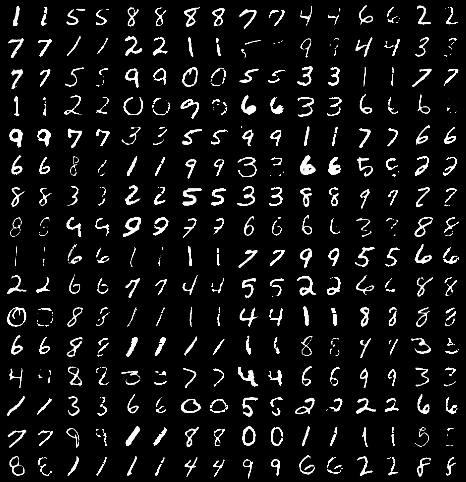 1 1 5 5 8 8 8 8 7 7 4 4 6 6 2 2
7 7 1 1 2 2 1 1 5 9 9 4 4 3 3
7 7 5 5 9 9 0 0 5 5 3 3 1 1 7 7
1 1 2 2 0 0 9 6 6 3 3 6 6 6
9 9 7 7 3 3 5 5 9 9 1 1 7 7 6 6
6 6 8 8 1 1 9 9 3 3 6 6 5 5 2 2
8 8 3 3 2 2 5 5 3 3 8 8 9 9 7 7
8 8 9 9 9 9 7 7 6 6 6 6 3 3 8 8
1 1 6 6 1 1 1 1 7 7 9 9 5 5 6 6
2 2 6 6 7 7 4 4 5 5 2 2 6 6 8 8
0 0 8 8 1 1 1 1 4 4 1 1 8 8 8 8
6 6 8 8 1 1 1 1 1 1 8 8 9 9 3 3
4 4 8 8 3 3 7 7 4 4 6 6 9 9 3 3
1 1 3 3 6 6 0 0 5 5 2 2 2 2 6 6
7 7 9 9 1 1 8 8 0 0 1 1 1 1 5
8 8 1 1 1 1 4 4 9 9 6 6 2 2 8 8